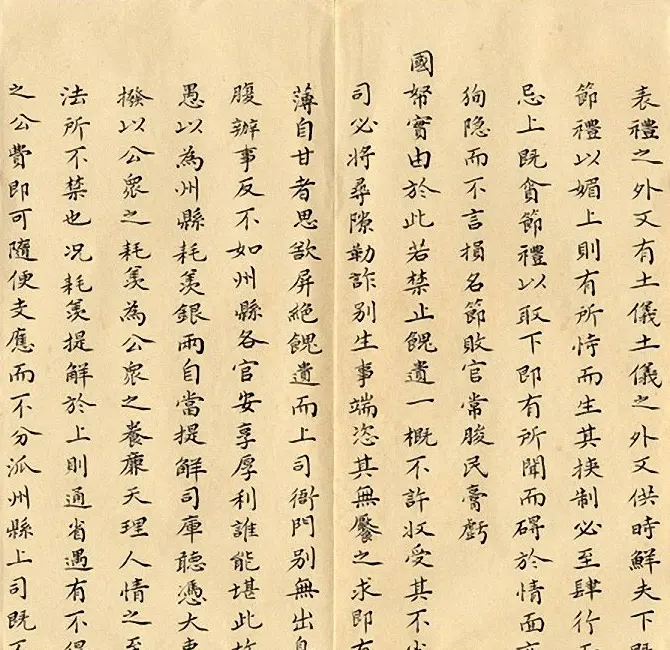 表禮之外又有土儀土儀之外又供時鮮夫下
節禮以媚上則有所恃而生其挾制必至肆行
忌上既貪節禮以取下即有所聞而碍於情面
狥隐而不言損名節敗官常朘民膏虧
國帑實由於此若禁止餽遺一概不許収受其不
司必將尋隙勒詐别生事端恣其無饜之求即有
薄自甘者思欲屏絶餽遺而上司衙門别無出息
腹辦事反不如州縣各官安享厚利誰能堪此故
愚以為州縣耗羡銀兩自當提解司庫聽憑大
撥以公衆之耗羡為公衆之養廉天理人情之至
法所不禁也况耗羡提解於上則通省遇有不得
之公費即可隨便支應而不分派州縣上司既不